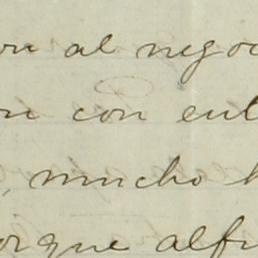 al nego
con ent
, mucho h
orque alfr